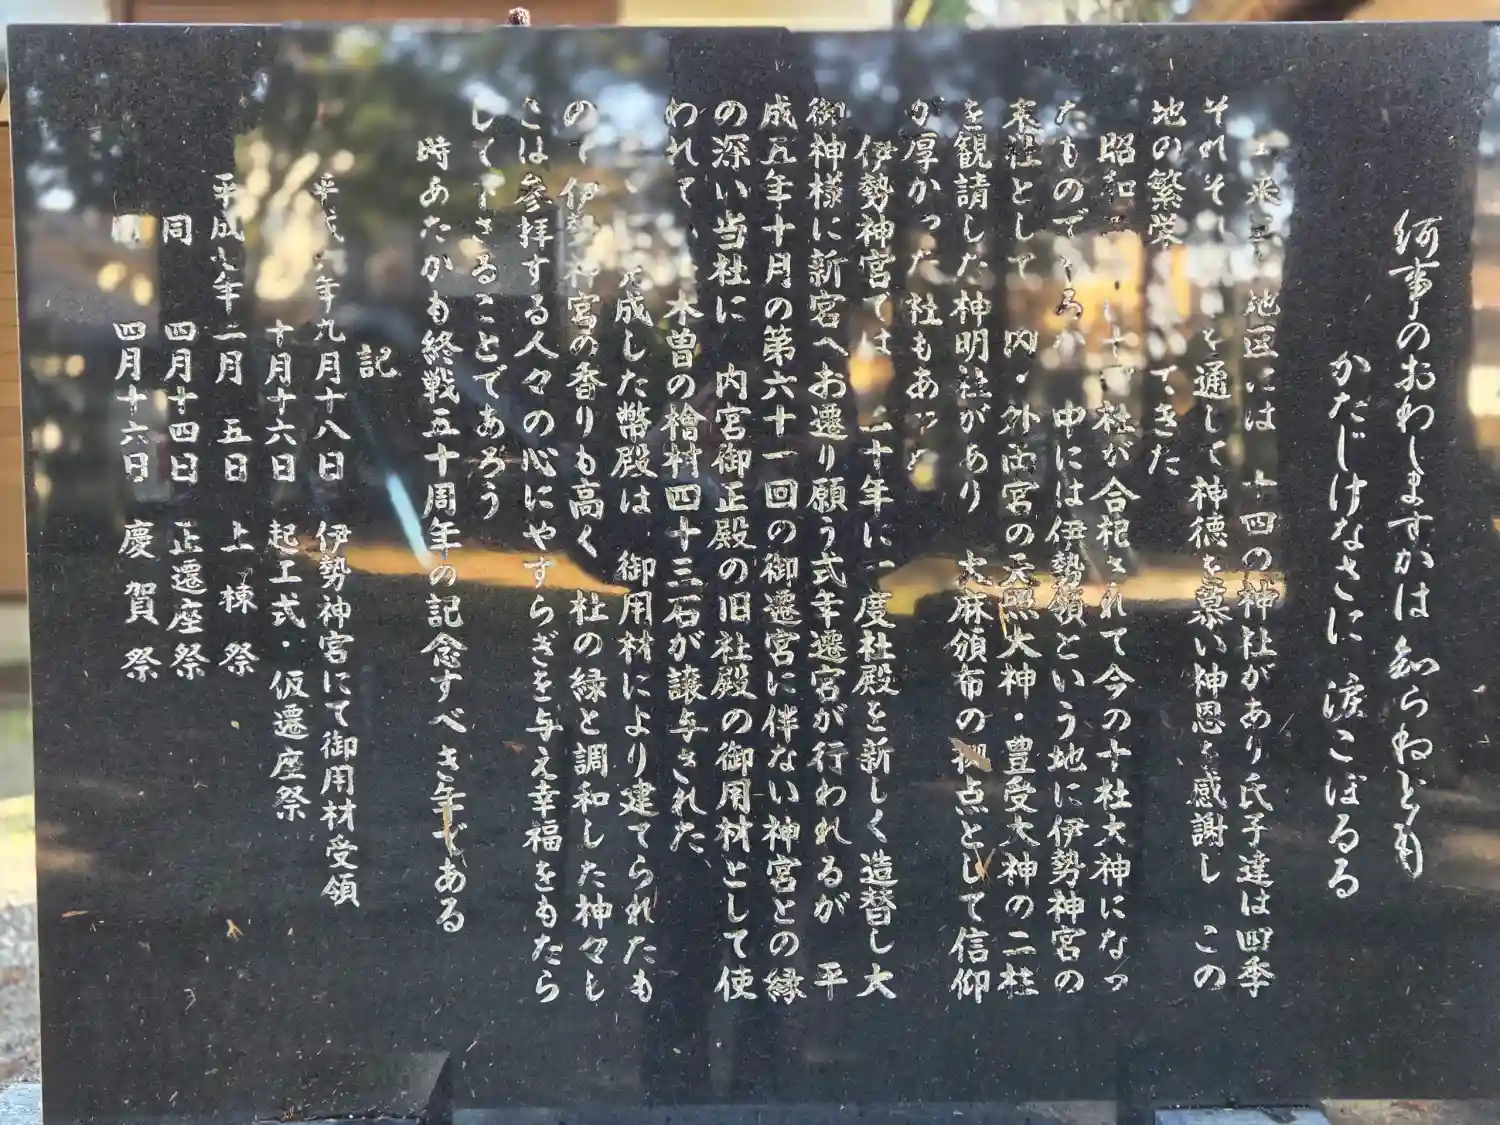 何事のおわしますかは知らねども
かだじけなさに 涙こぼるる
来 地区には 十四の神社があり氏子達は四季
それぞれ を通して神徳を慕い神恩を感謝し この
地の繁栄 てきた
昭和 社が合祀されて今の十社大神になっ
たものであるが 中には伊勢領という地に伊勢神宮の
末社として 内・外両宮の天照大神・豊受大神の二柱
を観請した神明社があり 大麻頒布の拠点として信仰
が厚かった社もあ
伊勢神宮では 二十年に一度社殿を新しく造替し大
御神様に新宮へお遷り願う式年遷宮が行われるが 平
成五年十月の第六十一回の御遷宮に伴ない神宮との縁
の深い当社に 内宮御正殿の旧社殿の御用材として使
われてい 木曽の檜材四十三石が譲与された
成した幣殿は 御用材により建てられたも
ので 伊勢神宮の香りも高く 杜の緑と調和した神々し
さは参拝する人々の心にやすらぎを与え幸福をもたら
してくださることであろう
時あたかも終戦五十周年の記念すべき年である
記
平成六年九月十八日 伊勢神宮にて御用材受領
十月十六日 起工式・仮遷座祭
平成七年二月 五日 上棟祭
同 四月十四日 正遷座祭
同 四月十六日 慶賀祭